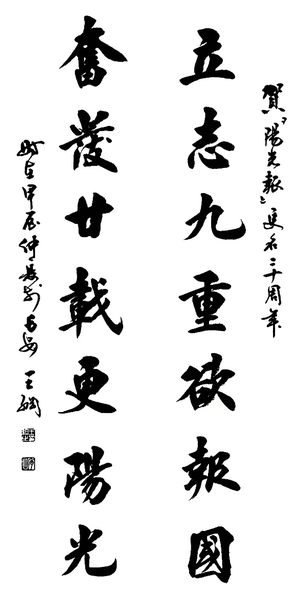 賀『陽光報』更名二十周年
立志九重欲報國
奮發廿載更陽光
时在甲辰仲夏於長安 王炳